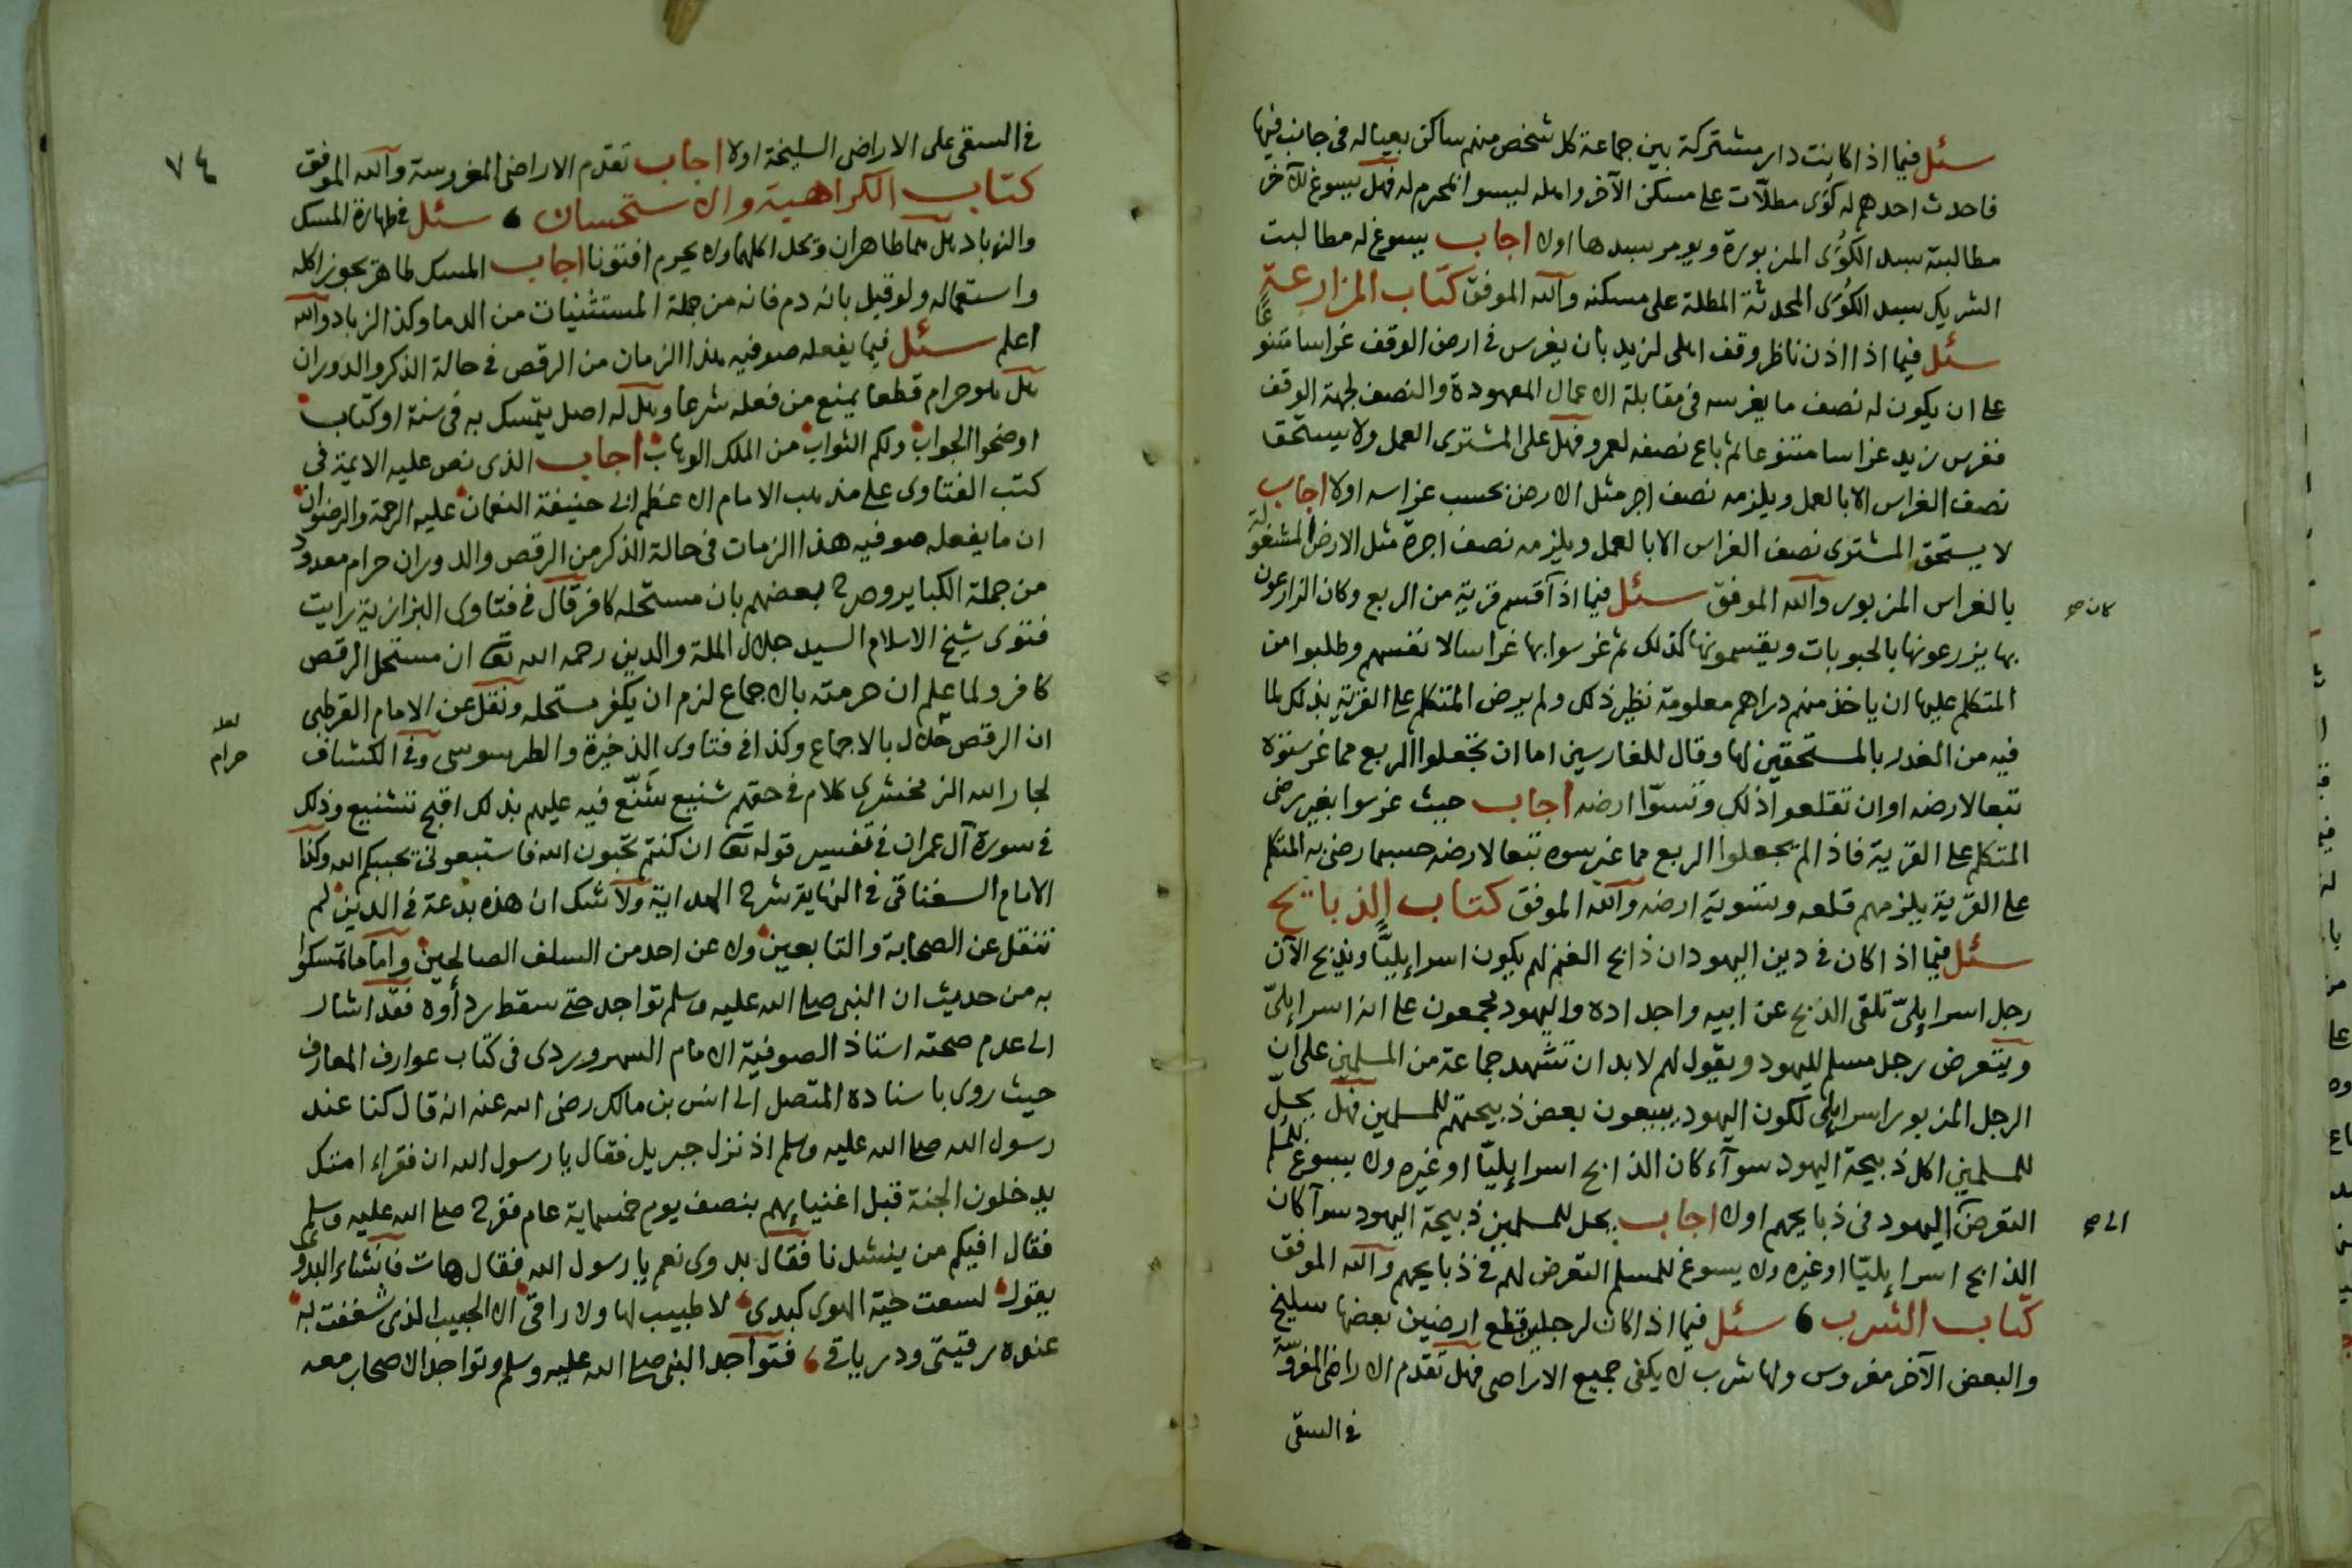 سئل فيما اذا كانت دار مشتركة بين جماعة كل شخص منهم ساكن بعياله فى جانب فيها
فاحدث احدهم له كُوًى مطلّات على مسكن الآخر واهله ليسوا بمحرم له فهل يسوغ للآخر
مطالبته بسد الكُوَى المزبورة ويومر بسدها اولا اجاب يسوغ له مطالبت
الشريك بسد الكُوَى المحدثة المطلة على مسكنه والله الموفق كتاب المزارعة
سئل فيما اذا اذن ناظر وقف اهلى لزيد بان يغرس فى ارض الوقف غراسا متنوعًا
على ان يكون له نصف ما يغرسه فى مقابلة الاعمال المعهودة والنصف لجهة الوقف
فغرس زيد غراسا متنوعا ثم باع نصفه لعمرو فهل على المشترى العمل ولا يستحق
نصف الغراس الا بالعمل ويلزمه نصف اجر مثل الارض بحسب غراسه اولا اجاب
لا يستحق المشترى نصف الغراس الا بالعمل ويلزمه نصف اجرة مثل الارض المشغولة
بالغراس المزبور والله الموفق سئل فيما اذا قسم قرية من الربع وكان الزارعون
كان صح
بها يزرعونها بالحبوبات ويقسمونها كذلك ثم غرسوا بها غراسا لانفسهم وطلبوا من
المتكلم عليها ان ياخذ منهم دراهم معلومة نظير ذلك ولم يرض المتكلم على القرية بذلك لما
فيه من الغدر بالمستحقين لها وقال للغارسين اما ان تجعلوا الربع مما غرستوه
تبعا لارضه او ان تقلعوا ذلك وتسوّا ارضه اجاب حيث غرسوا بغير رضى
المتكلم على القرية فاذا لم يجعلوا الربع مما غرسوه تبعا لارضه حسبما رضى به المتكلم
على القرية يلزمهم قلعه وتسوية ارضه والله الموفق كتاب الذبائح
سئل فيما اذا كان فى دين اليهود ان ذابح الغنم لهم يكون اسرايليًّا ويذبح الآن
رجل اسرايلىّ تلقى الذبح عن ابيه واجداده واليهود يجمعون على انه اسرايلىّ
ويتعرض رجل مسلم لليهود ويقول لهم لابد ان تشهد جماعة من المسلمين على ان
الرجل المزبور اسرايلى لكون اليهود يبيعون بعض ذبيحتهم للمسلمين فهل يحلّ
للمسلمين اكل ذبيحة اليهود سوآء كان الذابح اسرايليّا او غيره ولا يسوغ للمسلم
التعرض اليهود فى ذبايحهم اولا اجاب يحل للمسلمين ذبيحة اليهود سوآ كان
الى صح
الذابح اسرايليّا او غيره ولا يسوغ للمسلم التعرض لهم فى ذبايحهم والله الموفق
كتاب الشرب سئل فيما اذا كان لرجلين قطع ارضين بعضها سليخ
والبعض الآخر مغروس ولها شرب لا يكفى جميع الاراضى فهل تقدم الاراضى المغروسة
فى السقى
٧٤
فى السقى على الاراضى السليخة اولا اجاب تقدم الاراضى المغروسة والله الموفق
كتاب الكراهية والاستحسان سئل فى طهارة المسك
والزباد هل هما طاهران ويحل اكلهما ولا يحرم افتونا اجاب المسك طاهر يجوز اكله
واستعماله ولو قيل بانه دم فانه من جملة المستثنيات من الدما وكذا الزباد والله
اعلم سئل فيما يفعله صوفيه هذا الزمان من الرقص فى حالة الذكر والدوران
هل هو حرام قطعا يمنع من فعله شرعا وهل له اصل يتمسك به فى سنة او كتاب
اوضحوا الجواب ولكم الثواب من الملك الوهاب اجاب الذى نص عليه الايمة فى
كتب الفتاوى على مذهب الامام الاعظم ابى حنيفة النعمان عليه الرحمة والرضوان
ان ما يفعله صوفيه هذا الزمان فى حالة الذكر من الرقص والدوران حرام معدود
من جملة الكباير وصرح بعضهم بان مستحله كافر قال فى فتاوى البزازية رايت
فتوى شيخ الاسلام السيد جلال الملة والدين رحمه الله تعا ان مستحل الرقص
كافر ولما علم ان حرمته بالاجماع لزم ان يكفر مستحله ونقل عن الامام القرطبى
ان الرقص حلال بالاجماع وكذا فى فتاوى الذخيرة والطرسوسى وفى الكشاف
لعله
حرام
لجار الله الزمخشرى كلام فى حقهم شنيع شَنّع فيه عليهم بذلك اقبح تشنيع وذلك
فى سورة آل عمران فى تفسير قوله تعا ان كنتم تحبون الله فاتبعونى يحببكم الله وكذا
الامام السغناقى فى النهاية شرح الهداية ولا شك ان هذه بدعة فى الدين لم
تنقل عن الصحابة والتابعين ولا عن احد من السلف الصالحين واما ما تمسكوا
به من حديث ان النبى صلى الله عليه وسلم تواجد حتى سقط ردآوه فقد اشار
الى عدم صحته استاذ الصوفية الامام السهروردى فى كتاب عوارف المعارف
حيث روى باسناده المتصل الى انس بن مالك رضى الله عنه انه قال كنا عند
رسول الله صلى الله عليه وسلم اذ نزل جبريل فقال يا رسول الله ان فقراء امتك
يدخلون الجنة قبل اغنيايهم بنصف يوم خمسماية عام ففرح صلى الله عليه وسلم
فقال افيكم من ينشدنا فقال بدوى نعم يا رسول الله فقال هات فانشاء البدوى
يقول لسعت حية الهوى كبدى لا طبيب لها ولا راقى الا الحبيب الذى شغفت به
عنده رقيتى ودرياقى فتواجد النبى صلى الله عليه وسلم وتواجد الاصحاب معه